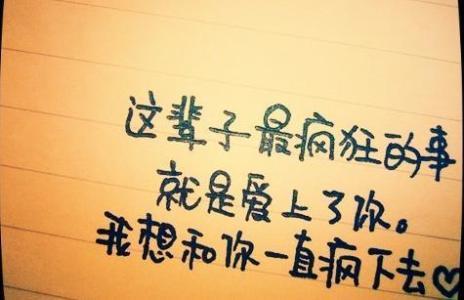 这辈子最疯狂的事
就是爱上了你。
我想和你一直疯下去♡